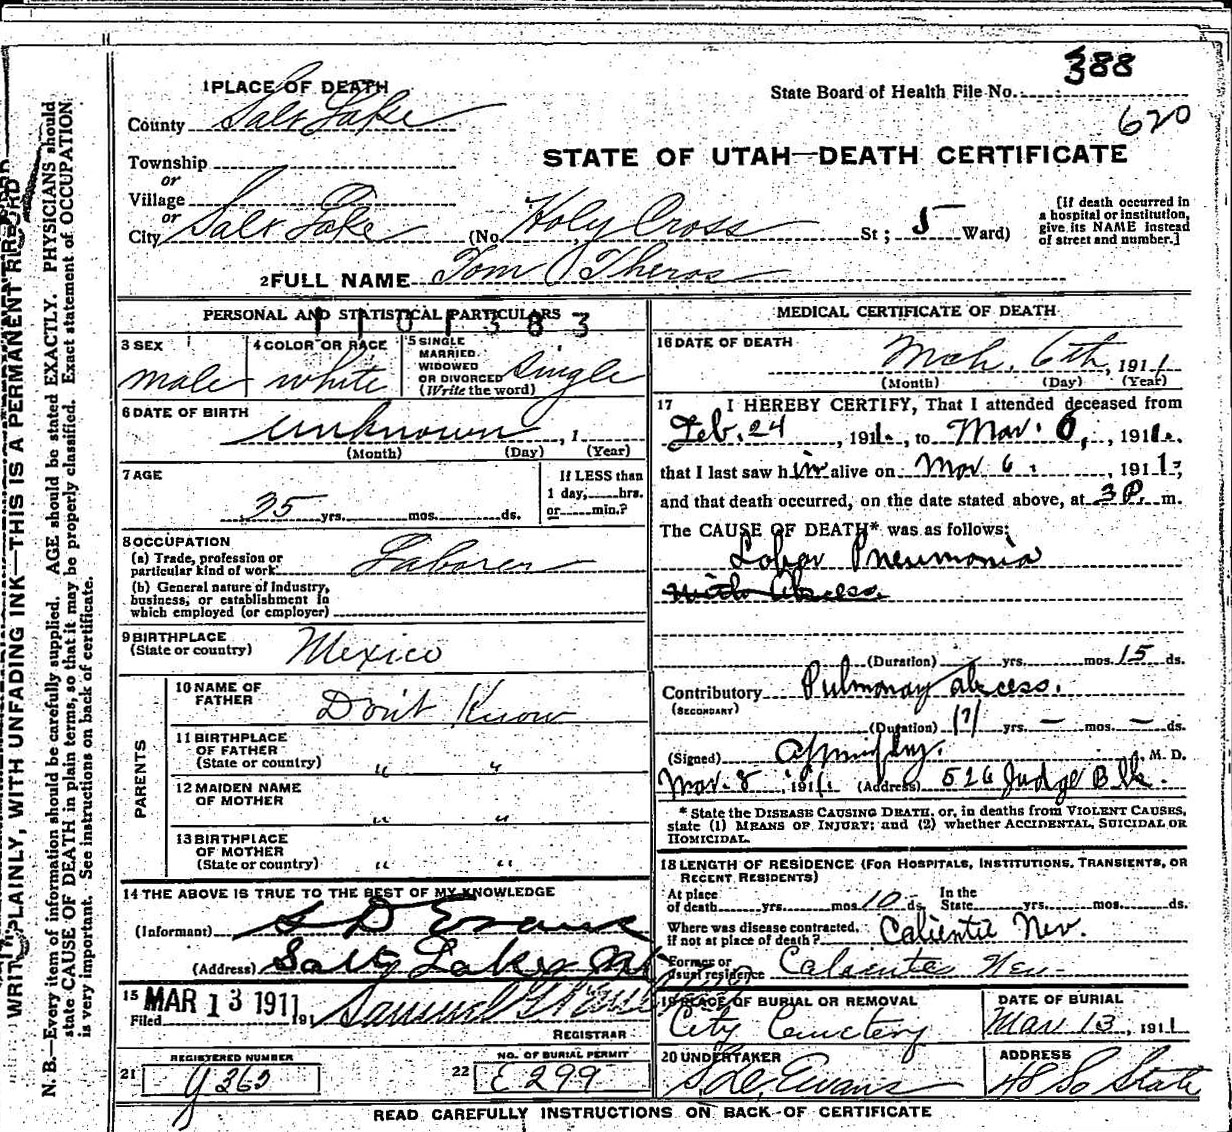 388
State Board of Health File No.
620
1 PLACE OF DEATH
County Salt Lake
STATE OF UTAH—DEATH CERTIFICATE
Township
or
Village
or
City Salt Lake (No. Holy Cross St; 5 Ward)
[If death occurred in
a hospital or institution,
give its NAME instead
of street and number.]
2 FULL NAME Tom Theros
WRITE PLAINLY, WITH UNFADING INK—THIS IS A PERMANENT RECORD
N. B.—Every item of information should be carefully supplied. AGE should be stated EXACTLY. PHYSICIANS should
state CAUSE OF DEATH in plain terms, so that it may be properly classified. Exact statement of OCCUPATION
is very important. See instructions on back of certificate.
PERSONAL AND STATISTICAL PARTICULARS
1101383
3 SEX
male
4 COLOR OR RACE
white
5 SINGLE
MARRIED.
WIDOWED
OR DIVORCED
(Write the word)
Single
6 DATE OF BIRTH
unknown, 1
(Month) (Day) (Year)
7 AGE
35 yrs. mos. ds.
If LESS than
1 day, hrs.
or min.?
8 OCCUPATION
(a) Trade, profession or
particular kind of work
Laborer
(b) General nature of industry,
business, or establishment in
which employed (or employer)
9 BIRTHPLACE
(State or country)
Mexico
PARENTS
10 NAME OF
FATHER
Don't Know
11 BIRTHPLACE
OF FATHER
(State or country) " "
12 MAIDEN NAME
OF MOTHER " "
13 BIRTHPLACE
OF MOTHER
(State or country) " "
14 THE ABOVE IS TRUE TO THE BEST OF MY KNOWLEDGE
(Informant) S D Evans
(Address) Salt Lake
15
Filed MAR 13 1911 191
Samuel G
REGISTRAR
21 REGISTERED NUMBER
G 365
22 NO. OF BURIAL PERMIT
E 299
MEDICAL CERTIFICATE OF DEATH
16 DATE OF DEATH
Mch. 6th, 1911
(Month) (Day) (Year)
17 I HEREBY CERTIFY, That I attended deceased from
Feb. 24, 1911, to Mar. 6, 1911.
that I last saw him alive on Mar 6, 1911;
and that death occurred, on the date stated above, at 3 P. m.
The CAUSE OF DEATH* was as follows:
Lobar Pneumonia
with Abscess
(Duration) yrs. mos. 15 ds.
Contributory Pulmonay abcess.
(SECONDARY)
(Duration) (?) yrs. — mos. — ds.
(Signed) M. D.
Mar. 8, 1911. (Address) 526 Judge Blk.
* State the DISEASE CAUSING DEATH, or, in deaths from VIOLENT CAUSES,
state (1) MEANS OF INJURY; and (2) whether ACCIDENTAL, SUICIDAL OR
HOMICIDAL.
18 LENGTH OF RESIDENCE (FOR HOSPITALS, INSTITUTIONS, TRANSIENTS, OR
RECENT RESIDENTS)
At place
of death yrs. mos. 10 ds.
In the
State yrs. mos. ds.
Where was disease contracted,
if not at place of death? Caliente Nev.
Former or
usual residence Calientes Nev
19 PLACE OF BURIAL OR REMOVAL
City Cemetery
DATE OF BURIAL
Mar 13, 1911
20 UNDERTAKER
S. D. Evans
ADDRESS
48 So State
READ CAREFULLY INSTRUCTIONS ON BACK OF CERTIFICATE